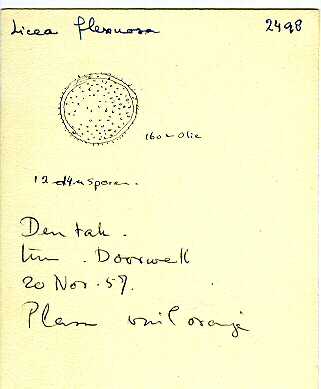 Licea flexuosa 2498
160 × Olie
12 d14 μ sporen.
Den tak.
Doorwerth
20 Nov. 57.
Plasm vuil oranje